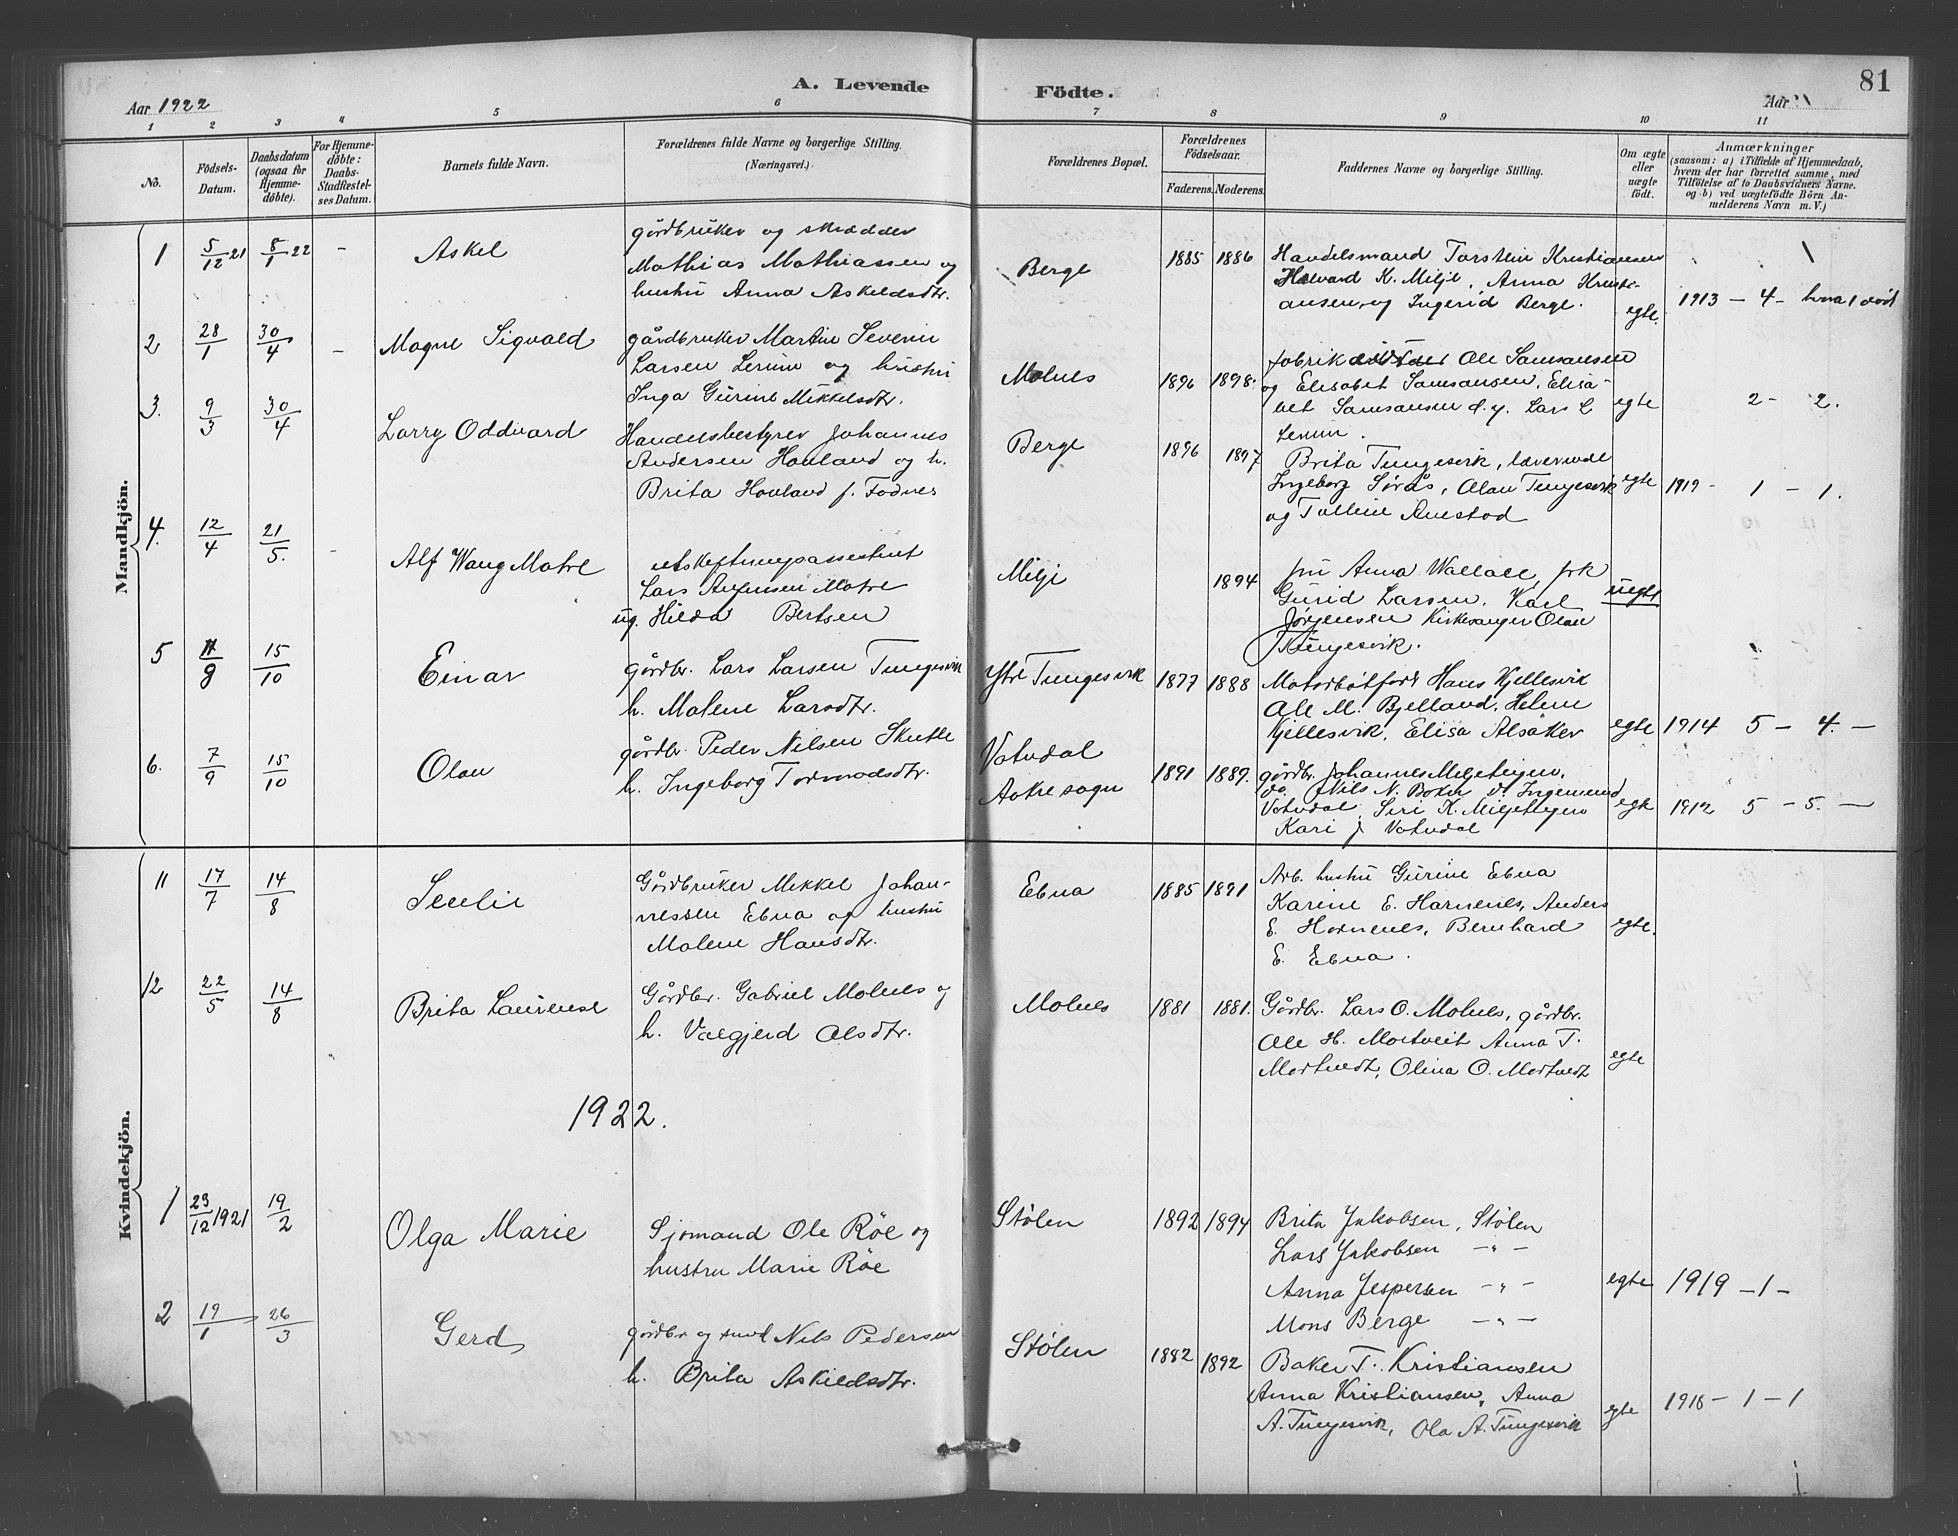 81
A. Levende Födte.
Aar 1922
Aar
1 2 3 4 5 6 7 8 9 10 11
No.
Födsels-Datum.
Daabsdatum (ogsaa for Hjemme-döbte).
For Hjemme-döbte: Daabs-Stadfæstel-ses Datum.
Barnets fulde Navn.
Forældrenes fulde Navne og borgerlige Stilling.
(Næringsvei.)
Forældrenes Bopæl.
Forældrenes Födselsaar.
Faderens. Moderens.
Faddernes Navne og borgerlige Stilling.
Om ægte eller uægte födt.
Anmærkninger
(saasom: a) i Tilfælde af Hjemmedaab,
hvem der har forrettet samme, med
Tilföielse af to Daabsvidners Navne.
og b) ved uægtefödte Börn An-
melderens Navn m. V.)
Mandkjön.
1 5/12 21 8/1 22 - Askel
gårdbruker og skrædder
Mathias Mathiassen og
hustru Anna Askeldsdtr.
Berge 1885 1886
Handelsmand Torstein Kristiansen
Halvard K. Milje, Anna Kristi-
ansen, og Ingerid Berge.
egte. 1913 - 4 - hvora 1 död
2 28/1 30/4 - Magne Sigvald
gårdbruker Martin Severin
Larsen Lerim og hustru
Inga Gurine Mikkelsdtr.
Molnes 1896 1898.
Ole Samsonsen
og Elisabet Samsonsen, Elisa-
bet Samsonsen d.y. Lars L
Lerim.
egte 2 - 2.
3. 9/3 30/4 Larry Oddvard
Handelsbestyrer Johannes
Andersen Houland og h.
Brita Houland f. Fodnes
Berge 1896 1897
Brita Tungesvik, lærerinde
Ingeborg Sørås, Olav Tungesvik
og
egte 1919 - 1 - 1.
4. 12/4 21/5. - Alf Wang Matre
Lars Matre
ug. Hilda Bertsen
Milje 1894
fru Anna Wallace, frk
Gurid Larsen, Karl
Jørgensen Kirkesanger Olav
Tungesvik.
uegte
5 11/8 15/10 Einar
gårdbr. Lars Larsen Tungesvik
h. Malene Larsdtr.
Ytre Tungesvik 1877 1888
Motorbåtför Hans Kjellesvik
Ole M. Bjelland, Helene
Kjellesvik, Elisa Alsåker
egte 1914 5 - 4. -
6. 7/9 15/10 Olav
gårdbr. Peder Nilsen Skutle
h. Ingeborg Tormodsdtr.
Vatndal
Aakre sogn
1891 1889.
gårdbr. Johannes Miljeteigen,
do. Nils N. Ingemund
Vatndal, Siri K. Miljeteigen
Kari J Vatndal
egte 1912 5 - 5. -
Kvindekjön.
11 17/7 14/8
Gårdbruker Mikkel Johan-
nessen Ebna og hustru
Malene Hansdtr.
Ebna 1885 1891
Arb. hustru Gurine Ebna
Karine E. Hornenes, Anders
E. Hornenes, Bernhard
E. Ebna.
egte.
12 22/5 14/8 Brita Laurense
Gårdbr. Gabriel Molnes og
h. Valgjerd Olsdtr.
Molnes 1881 1881.
Gårdbr. Lars O. Molnes, gårdbr.
Ole H. Mortveit Anna T.
Mortvedt, Olina O. Mortvedt
egte
1922.
1 23/12 1921 19/2 Olga Marie
Sjömand Ole Röe og
hustru Marie Röe
Stølen 1892 1894
Brita Jakobsen, Stølen
Lars Jakobsen -"-
Anna Jespersen -"-
Mons Berge -"-
egte 1919 - 1 -
2 19/1 26/3 Gerd
gårdbr og smed Nils Pedersen
h. Brita Askildsdtr.
Stølen 1882 1892
Baker T. Kristiansen
Anna Kristiansen, Anna
A. Tungesvik, Ola A. Tungesvik
egte 1916 - 1 - 1